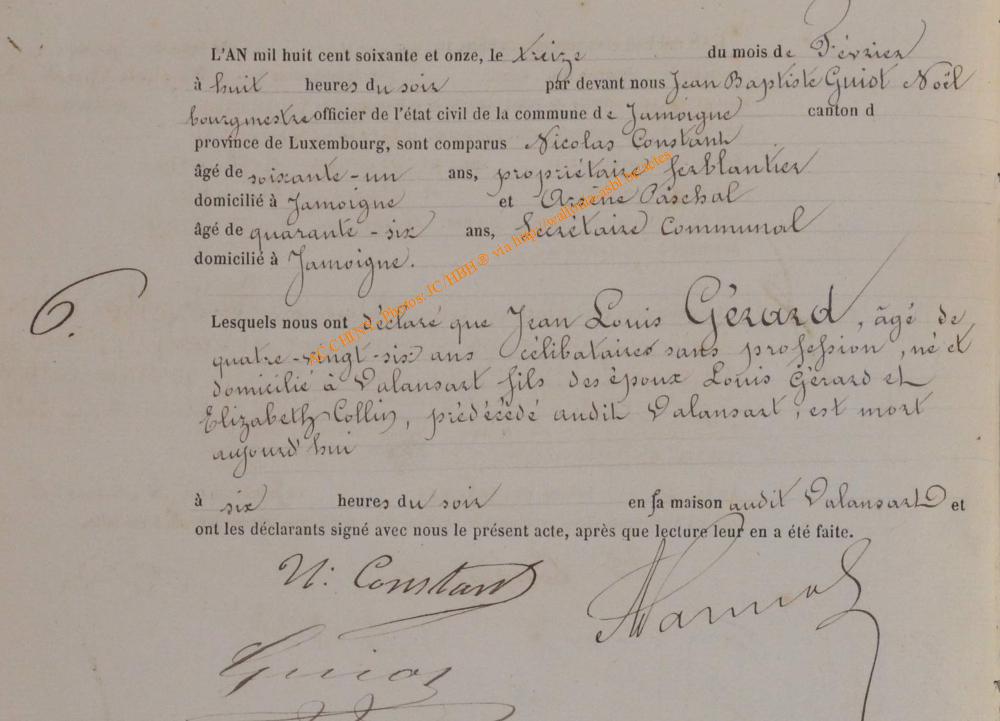 L'AN mil huit cent soixante et onze, le treize du mois de Février
à huit heures du soir par devant nous Jean Baptiste Guiot Noël
bourgmestre officier de l'état civil de la commune de Jamoigne canton d
province de Luxembourg, sont comparus Nicolas Constant
âgé de soixante-un ans, propriétaire ferblantier
domicilié à Jamoigne et Arsène Paschal
âgé de quarante-six ans, Secrétaire Communal
domicilié à Jamoigne.
6.
Lesquels nous ont déclaré que Jean Louis Gérard, âgé de
quatre-vingt-six ans célibataire sans profession, né et
domicilié à Valansart fils des époux Louis Gérard et
Elizabeth Collin, prédécédé audit Valansart, est mort
aujourd'hui
à six heures du soir en sa maison audit Valansart et
ont les déclarants signé avec nous le présent acte, après que lecture leur en a été faite.
N: Constant
Guiot